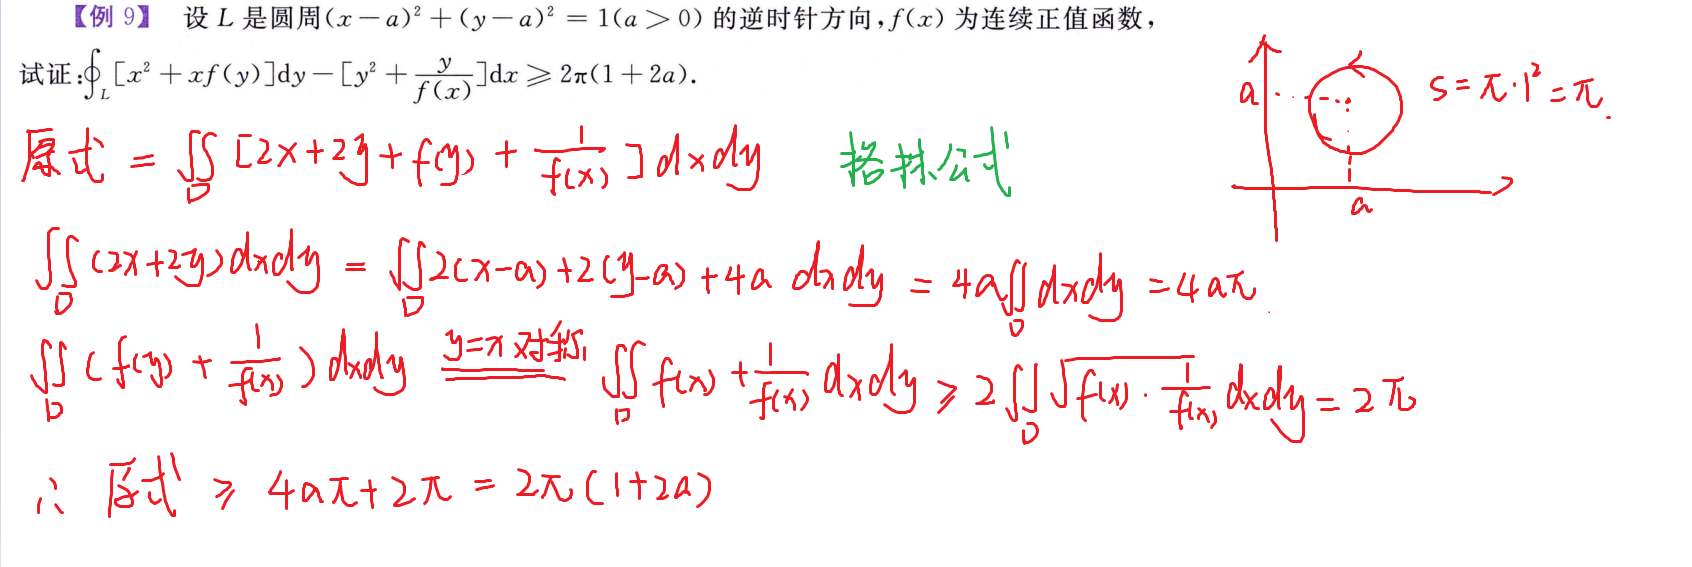 【例 9】 设 L 是圆周(x－a)²＋(y－a)²＝1(a＞0)的逆时针方向,f(x)为连续正值函数,
试证:∮_L [x²＋xf(y)]dy－[y²＋y/f(x)]dx⩾2π(1＋2a).
a
S=π·1²=π.
a
原式 = ∬_D [2x+2y+f(y)+1/f(x)]dxdy 格林公式
∬_D (2x+2y)dxdy = ∬_D 2(x-a)+2(y-a)+4a dxdy = 4a∬_D dxdy = 4aπ.
∬_D (f(y)+1/f(x))dxdy y=x对称 ∬_D f(x)+1/f(x) dxdy ⩾ 2∬_D √(f(x)·1/f(x)) dxdy = 2π
∴ 原式 ⩾ 4aπ+2π = 2π(1+2a)